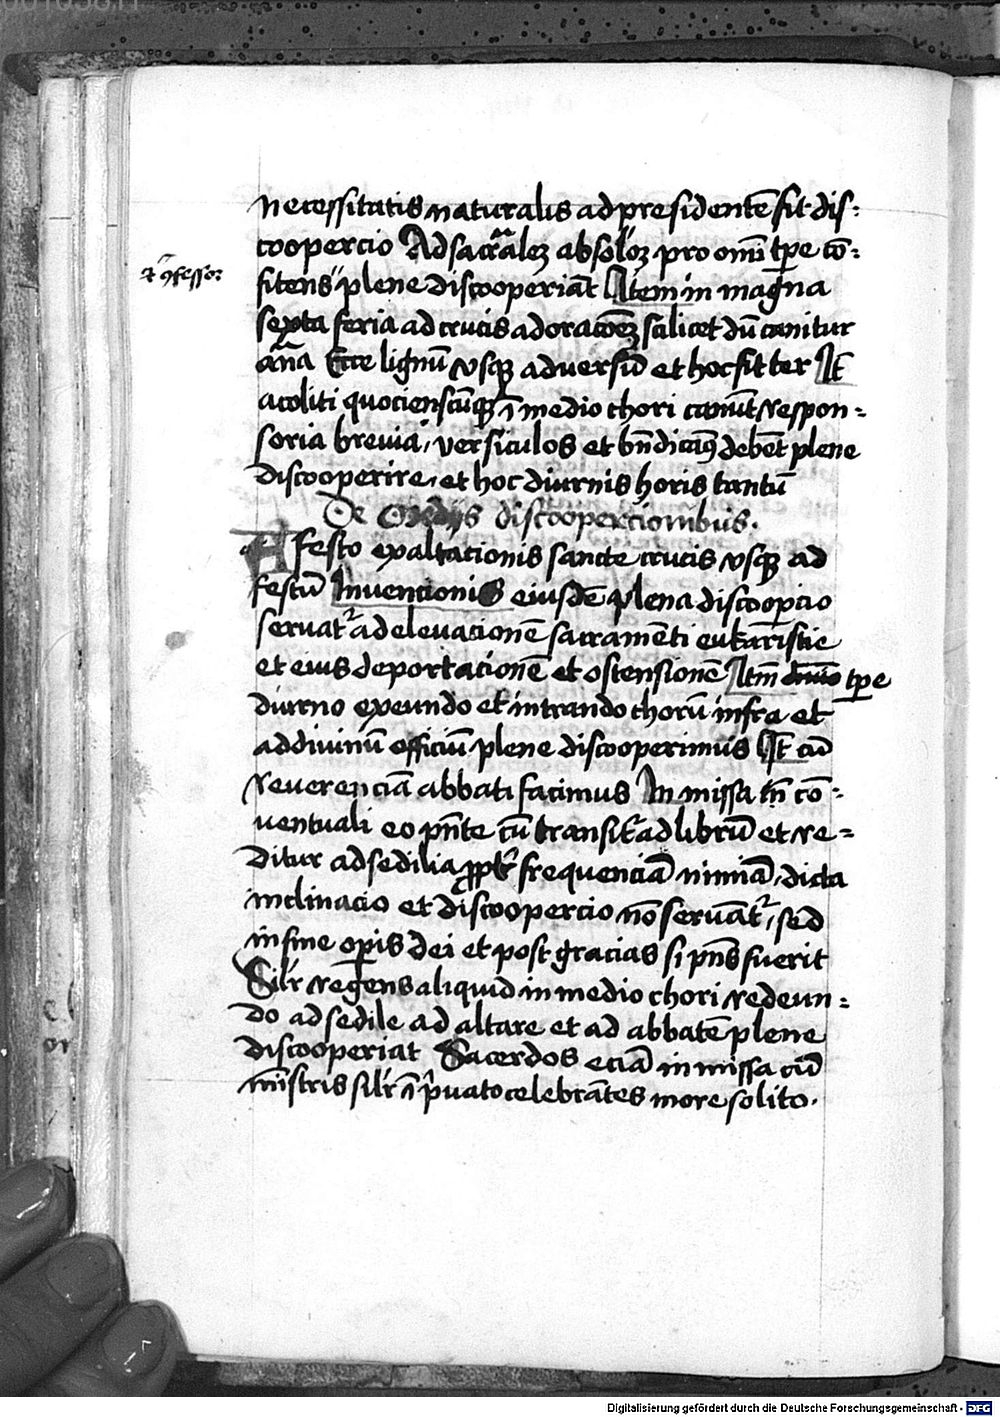 necessitatis naturalis ad presidentē fit dis=
coopercio Ad sacrāle absoluꝫ pro omī tp̄e cō=
⁊ ꝯfessor
fitens plene discooperiāt Item in magna
sexta feria ad crucis adoracōeꝫ scilicet dū canitur
an̄a Ecce lignū vsqꝫ ad versū et hoc fit ter It̄
acoliti quocienscūqꝫ ī medio chori canūt respon=
soria brevia, versiculos et bn̄dicamꝰ debēt plene
discooperire, et hoc diurnis horis tantū
De discoopercionibus.
A festo exaltacionis sancte crucis vsqꝫ ad
festū Invencionis eiusdē plena discoopcio
seruat᷑ ad elevacionē sacramēti eukaristie
et eius deportacionē et ostensionē Itm̄ tp̄e
diurno exeundo et intrando chorū infra et
ad divinū officiū plene discooperimus It̄ cū
reverenciā abbati facimus In missa tn̄ cō=
ventuali eo pn̄te cū transit᷑ ad librū et re=
ditur ad sedilia ꝓpt᷑ frequenciā nimiā, dicta
inclinacio et discoopercio nō seruāt᷑, sed
in fine opis dei et post gracias si pn̄s fuerit
Silr̄ regens aliquid in medio chori redeun=
do ad sedile ad altare et ad abbatē plene
discooperiat Sacerdos eciā in missa cū
mīstris silr̄ ī pͥuato celebrātes more solito.
Digitalisierung gefördert durch die Deutsche Forschungsgemeinschaft - DFG